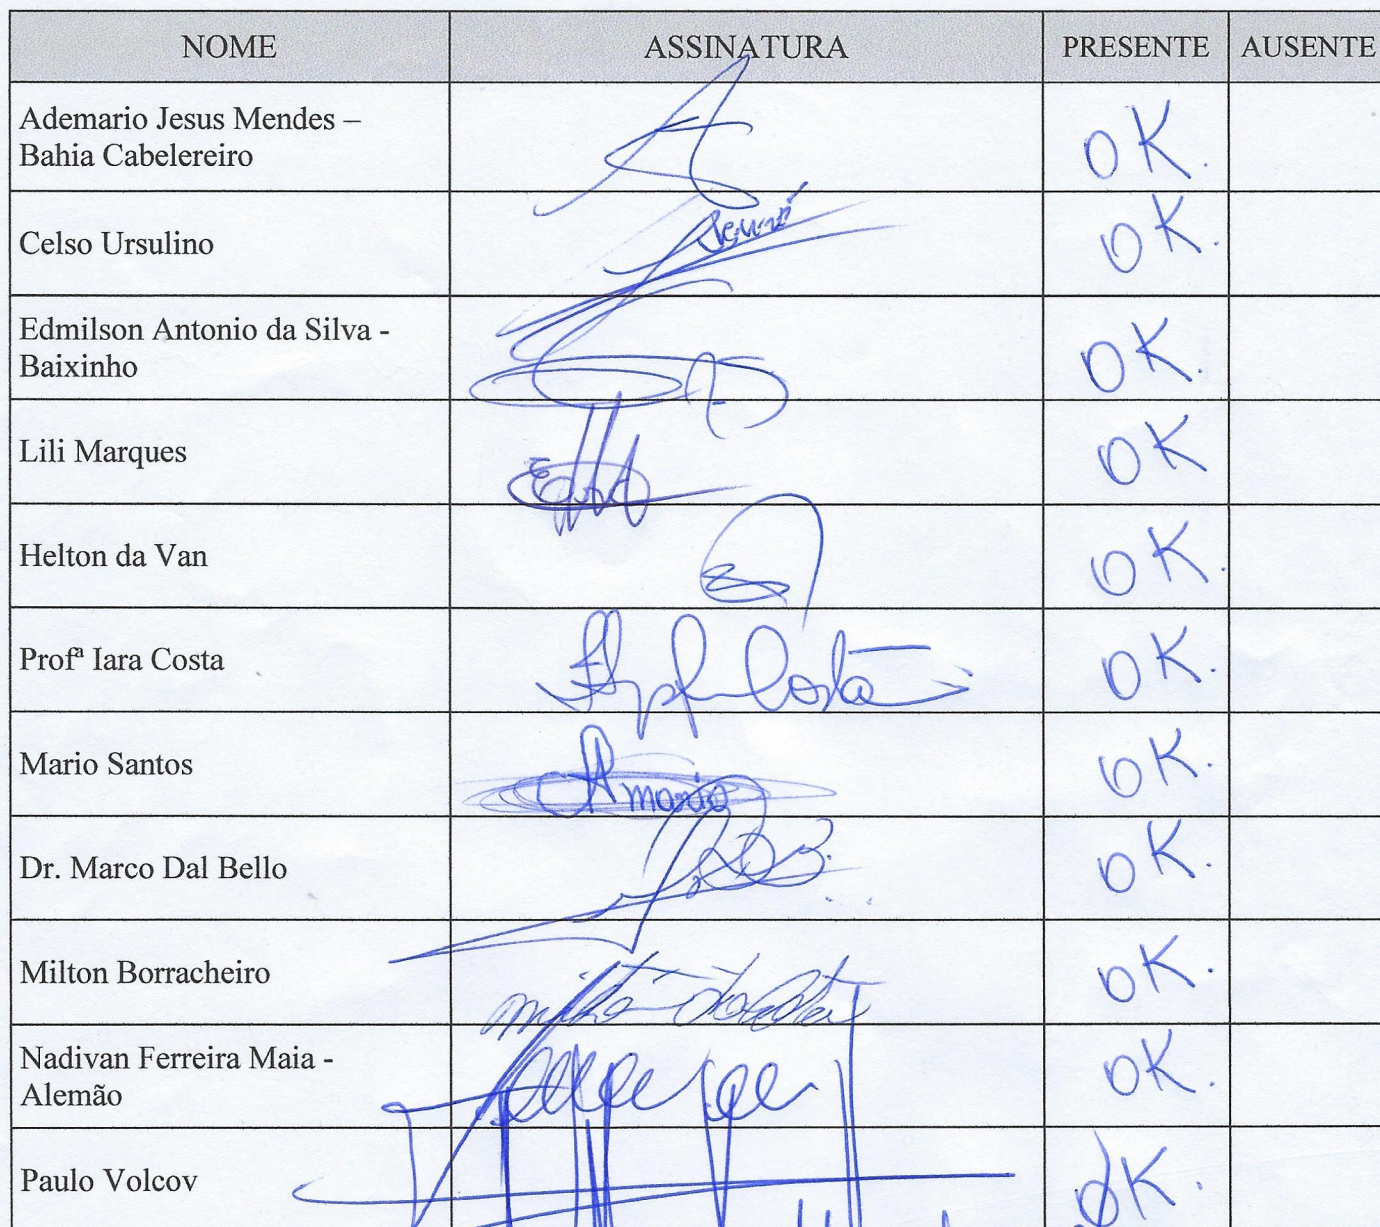 NOME ASSINATURA PRESENTE AUSENTE
Ademario Jesus Mendes –
Bahia Cabelereiro
OK.
Celso Ursulino
OK.
Edmilson Antonio da Silva -
Baixinho
OK.
Lili Marques
OK
Helton da Van
OK.
Profª Iara Costa
Costa
OK.
Mario Santos
mario
OK.
Dr. Marco Dal Bello
OK.
Milton Borracheiro
OK.
Nadivan Ferreira Maia -
Alemão
OK.
Paulo Volcov
OK.